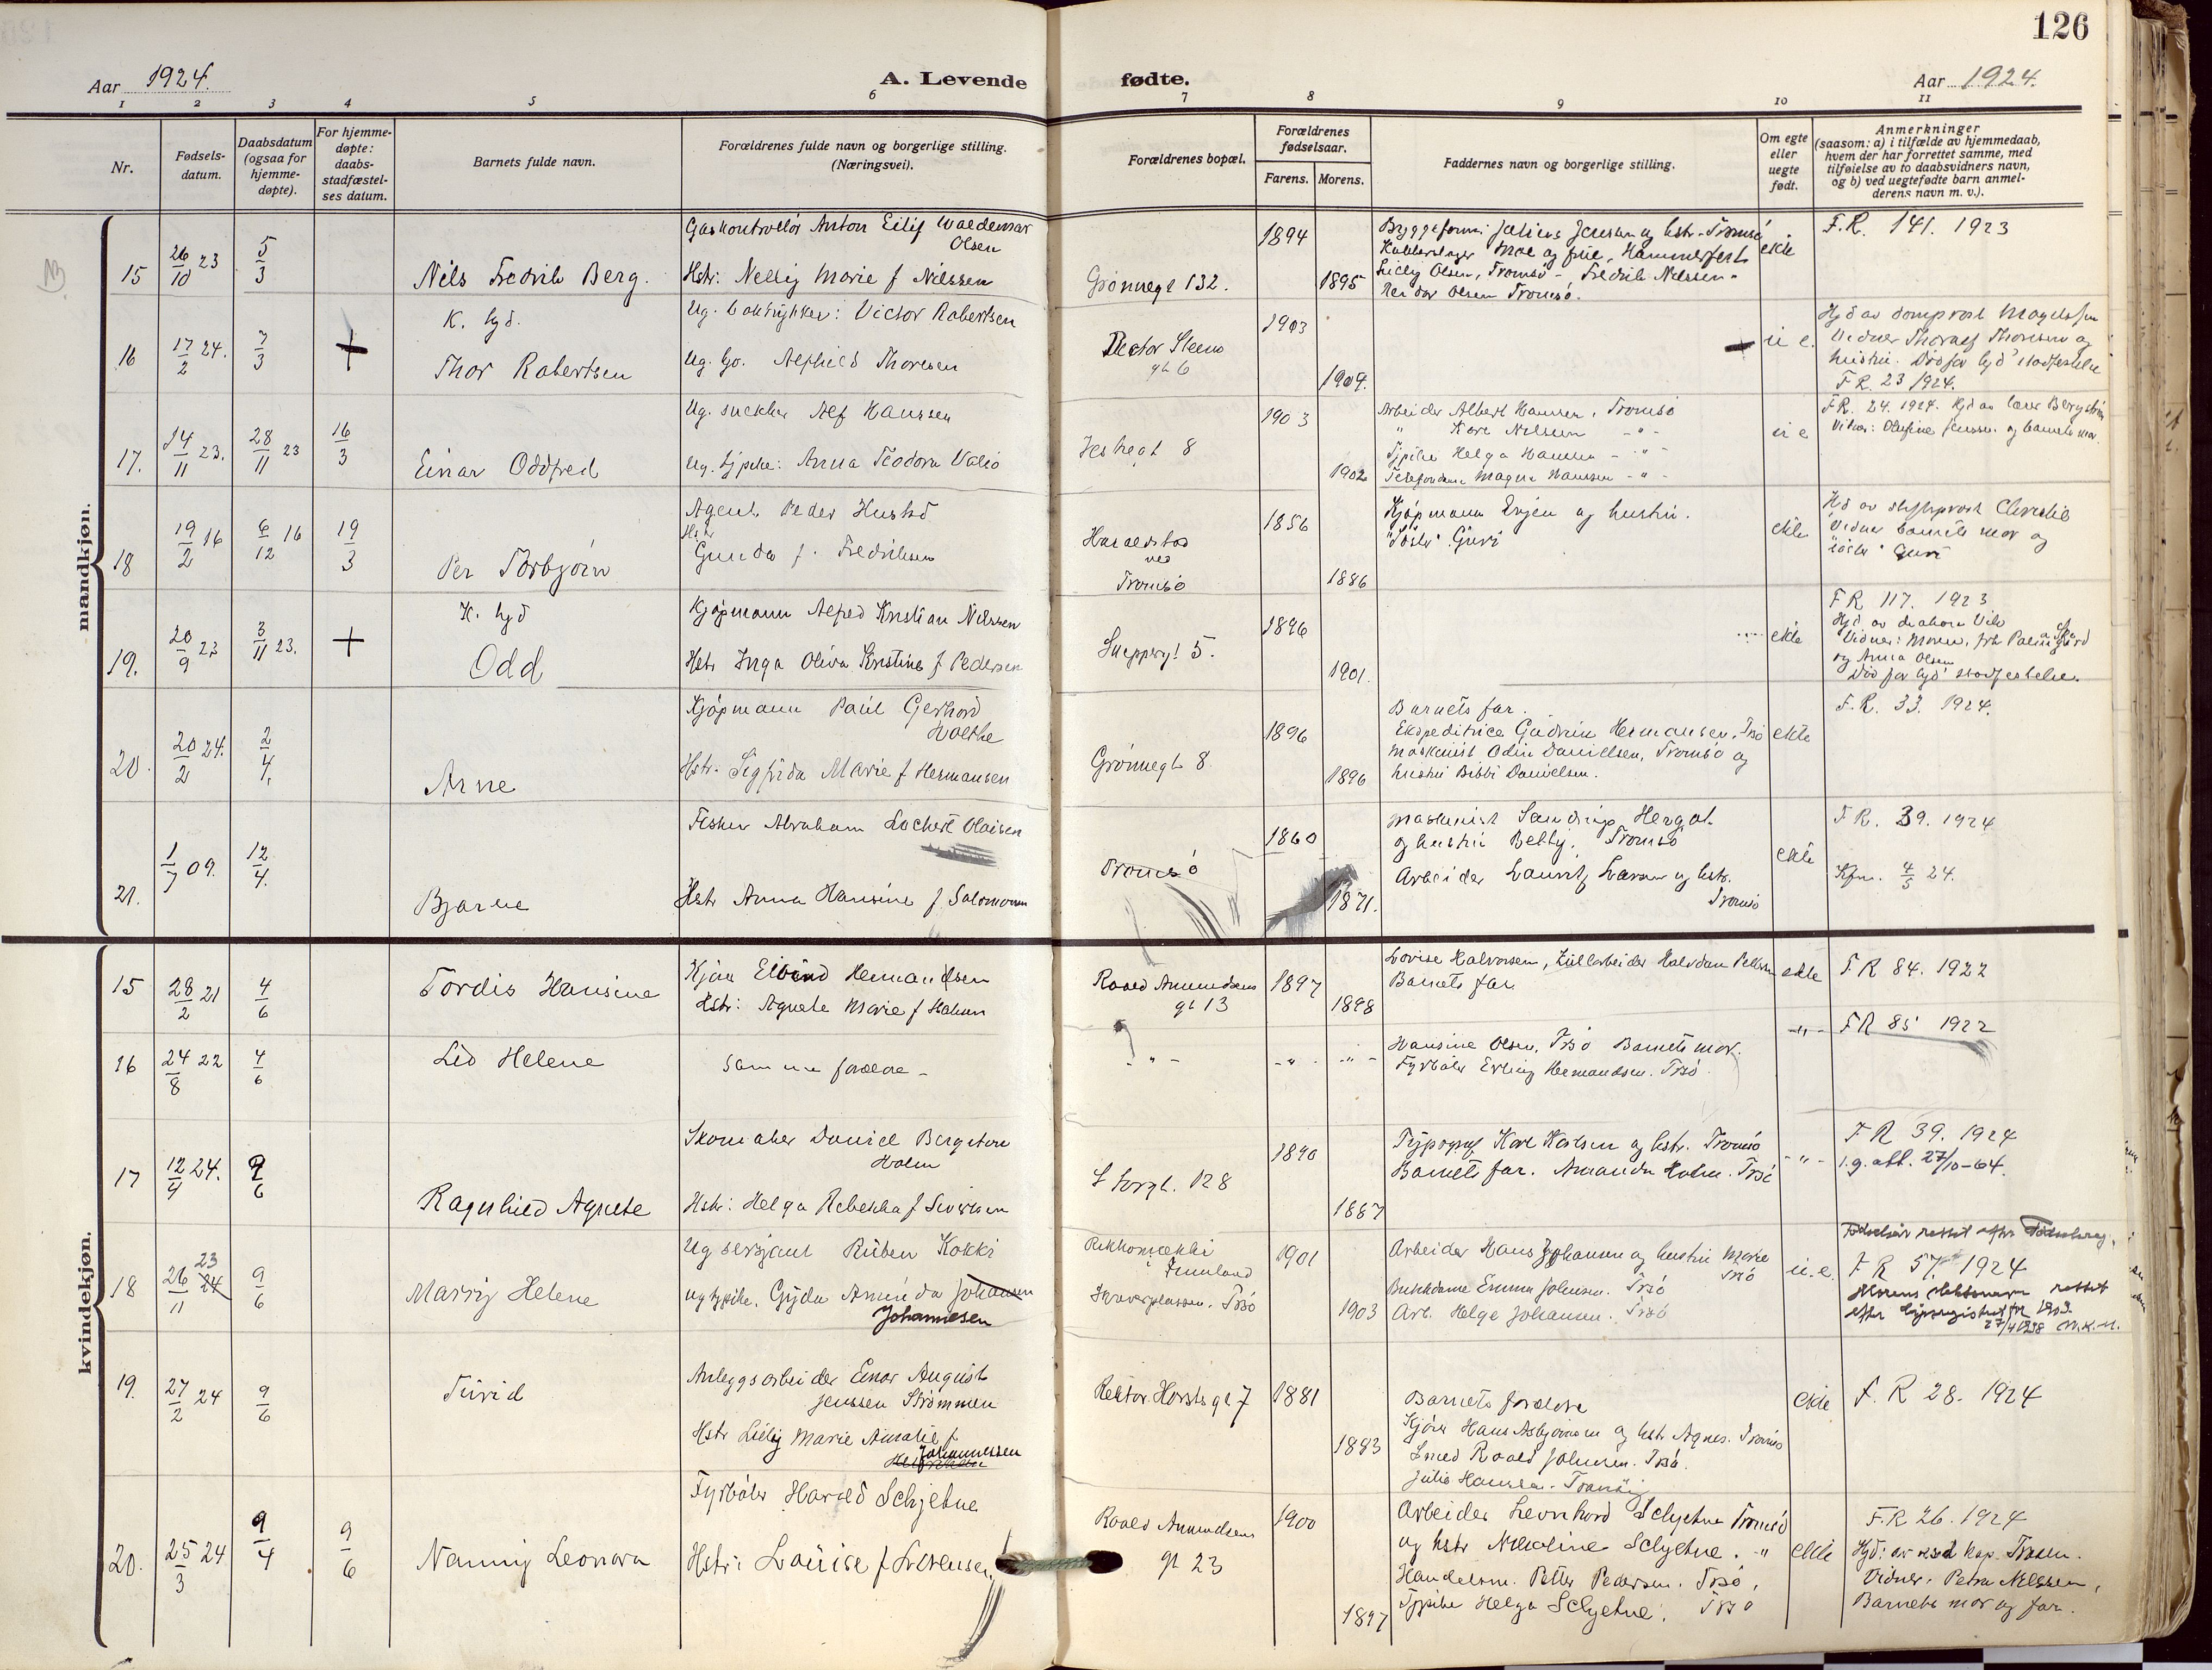 126
Aar 1924.
A. Levende
fødte.
Aar 1924.
1 2 3 4 5 6 7 8 9 10 11
Nr.
Fødsels-
datum.
Daabsdatum
(ogsaa for
hjemme-
døpte).
For hjemme-
døpte:
daabs-
stadfæstel-
ses datum.
Barnets fulde navn.
Forældrenes fulde navn og borgerlige stilling.
(Næringsvei).
Forældrenes bopæl.
Forældrenes
fødselsaar.
Farens. Morens.
Faddernes navn og borgerlige stilling.
Om egte
eller
uegte
født.
Anmerkninger
(saasom: a) i tilfælde av hjemmedaab,
hvem der har forrettet samme, med
tilføielse av to daabsvidners navn,
og b) ved uegtefødte barn anmel-
derens navn m. v.).
mandkjøn.
15 26/10 23 5/3 Nils Fredrik Berg.
Gaskontrollør Anton Eilif Waldemar
Olsen
Hstr. Nelly Marie f Nilssen
Grønnegt 132. 1894 1895
Lilly Olsen, Tromsø - Fredrik Nilssen
Reidar Olsen Tromsø.
ekte F.R. 141. 1923
16 17/2 24. 7/3 +
K. hjd.
Thor Robertsen
Ug. : Victor Robertsen
Ug. Alfhild Thoresen
Rector Steens
gt 6
1903 1904.
u e.
Hjd av domprost Magelssen
Vidner Thoralf Thoresen og
hustru. Død før hjd stadfestelse
F R. 23 1924.
17. 14/11 23. 28/11 23 16/3 Einar Oddfred
Ug. Alf Hanssen
Ug. tjpike: Anna Teodora Valio
gt 8 1903 1902
Arbeider Albert Hansen, Tromsø
" Karl Nilssen - " -
Tjpike Helga Hansen - " -
Magna Hanssen - " -
u e
F.R. 24. 1924. Hjd av lærer Bergstrøm
18 19/2 16 6/12 16 19/3 Per Torbjørn
Agent Peder Hustad
Hstr
Gunda f. Fredriksen
Haraldstad
ved
Tromsø
1856 1886
Kjøpmann og hustru.
"Søster" Guri
ekte
Hjd av stiftsprost Christie
Vidner barnets mor og
"søster" Guri
19. 20/9 23 3/11 23. +
K. hjd
Odd
Kjøpmann Alfred Kristian Nilssen
Hstr Inga Oliva Kristine f Pedersen
Skippergt 5. 1896 1901.
ekte
FR 117. 1923
Hjd av diakon Vik
og Anna Olsen
Død før hjd stadfestelse.
20. 20/2 24. 2/4. Arne
Kjøpmann Paul Gerhard
Holthe
Hstr. Sigfrida Marie f Hermansen
Grønnegt 8. 1896 1896
Barnets far.
Ekspeditrice Gudrun Hermansen, Tsø
Maskinist Odin Danielsen, Tromsø og
hustru Bibbi Danielsen.
ekte F.R. 33. 1924.
21. 1/7 09. 12/4. Bjarne
Fisker Abraham Lochert Olaisen
Hstr Anna Hansine f Salomonsen
Tromsø 1860 1871.
Maskinist
og hustru Betty. Tromsø
Arbeider Lauritz Larsen og hstr.
Tromsø
ekte F R. 39. 1924
Kfm. 4/5 24.
kvindekjøn.
15 28/2 21 4/6 Tordis Hansine
Eivind Hermandsen
Hstr: Agnete Marie f
Roald Amundsens
gt 13
1897 1898
Lovise Halvorsen, Halvdan
Barnets far
ekte F R 84. 1922
16 24/8 22 4/6 Lid Helene
Samme forældre -
- " - - " - - " -
Hansine Olsen, Tsø Barnets mor.
Fyrbøter Erling Hermandsen. Tsø.
- " - F R 85 1922
17 12/4 24. 9/6 Ragnhild Agnete
Skomaker Daniel Bergiton
Holm
Hstr: Helga Rebekka f Sivertsen
S Torgt. 128 1890 1887
Typograf Karl Karlsen og hstr. Tromsø
Barnets far. Amanda Holm. Tsø
- " - F R 39. 1924
1.g. att. 27/10-64.
18 26/11 24 23 9/6 Marry Helene
Ug sersjant Ruben Kokki
ug tjpike. Gyda Amanda Johansen
Johannesen
i Finnland
Tsø
1901 1903
Arbeider Hans Johansen og hustru Marie
Tsø
Emma Johnsen. Tsø
Arb. Helge Johansen. Tsø
u. e.
Fødselsår rettet efter
F R 57. 1924
Morens rettet
27/4 1938 M.K.N.
19. 27/2 24 9/6 Turid
Anleggsarbeider Einar August
Jenssen Strømmen
Hstr Lilly Marie Amalie f
Johannessen
Rektor Horsts gt 7 1881 1883
Barnets forældre
Hans Asbjørnsen og hstr Agnes. Tromsø
Smed Roald Johnsen. Tsø.
Julie Hansen.
ekte F. R 28. 1924
20. 25/3 24 9/4 9/6 Nanny Leonora
Fyrbøter Harald Schjetne
Hstr: Louise f Lorensen.
Roald Amundsens
gt 23
1900 1897
Arbeider Leonhard Schjetne Tromsø
og hstr Nikoline Schjetne. "
Handelsm. Petter Pedersen. Tsø.
Tjpike Helga Schjetne. Tsø
ekte F.R 26. 1924
Hjd: av res kap.
Vidner. Petra Nilssen,
Barnets mor og far.